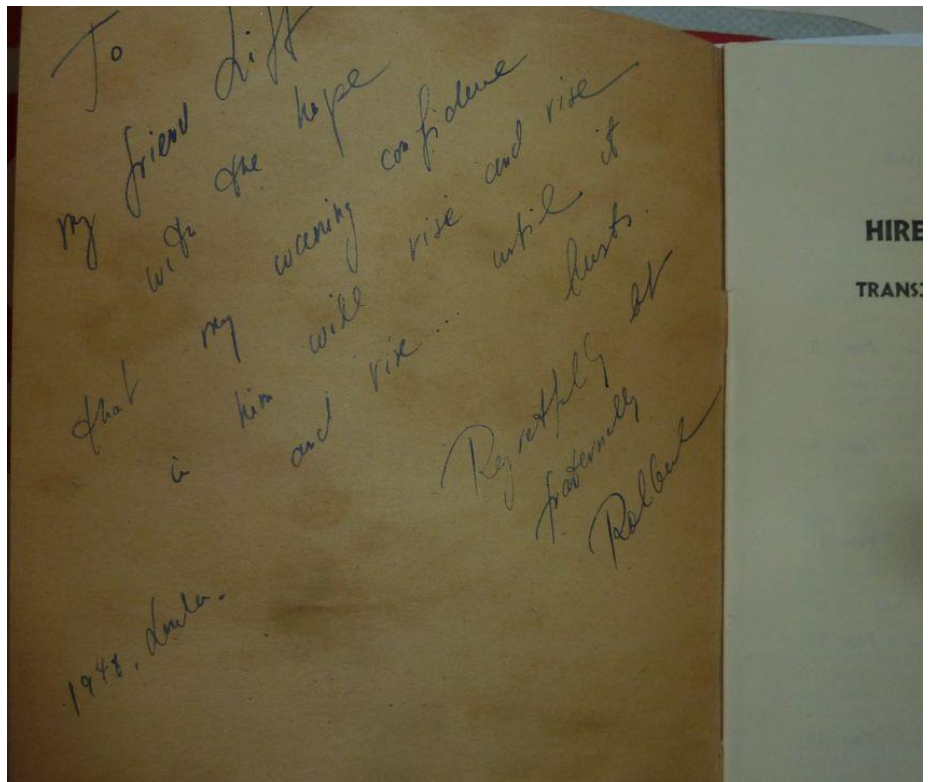 To Liff
my friend
with the hope
that my waning confidence
in him will rise and rise
and rise... until it
busts.
Regretfully et
fraternelly
1948, London.
HIRE
TRANS